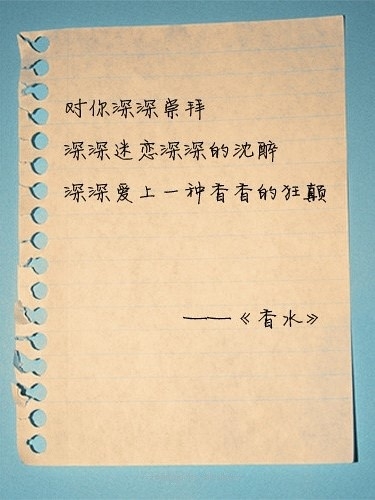 对你深深崇拜
深深迷恋深深的沈醉
深深爱上一种香香的狂颠
——《香水》